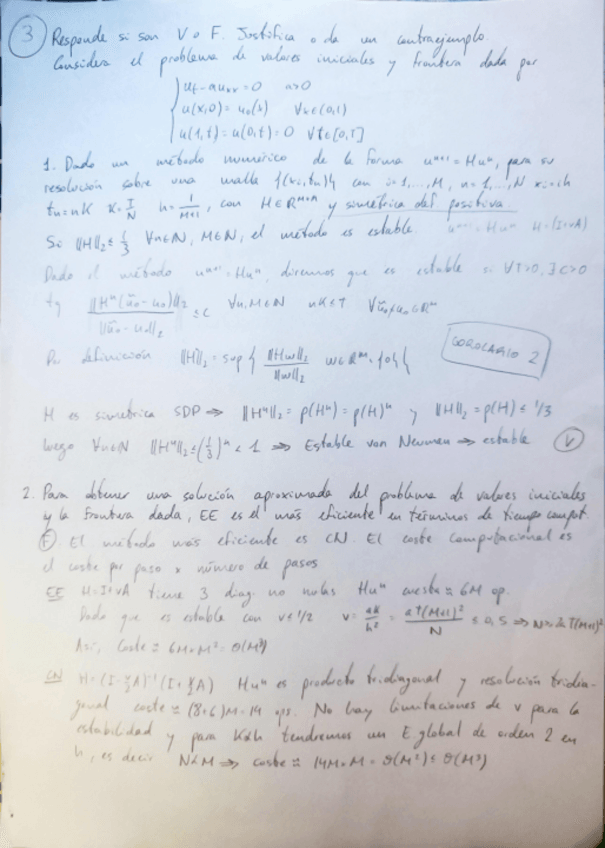 3 Responde si son V o F. Justifica o da un contraejemplo.
Considera el problema de valores iniciales y frontera dada por
u_t - a u_xx = 0 a>0
u(x,0) = u_0(x) ∀x∈(0,1)
u(1,t) = u(0,t) = 0 ∀t∈[0,T]
1. Dado un método numérico de la forma u^{n+1} = Hu^n, para su
resolución sobre una malla {(x_i,t_n)} con i=1,...,M, n=1,...,N x_i=ih
t_n=nK K=T/N h=1/(M+1), con H∈R^{M×M} y simétrica def positiva.
Si ||H||_2 ≤ 1/3 ∀n∈N, M∈N, el método es estable. u^{n+1}=Hu^n H=(I+νA)
Dado el método u^{n+1}=Hu^n, diremos que es estable si ∀T>0, ∃C>0
tq ||H^n(ũ_0-u_0)||_2 / ||ũ_0-u_0||_2 ≤ C ∀n,M∈N nK≤T ∀ũ_0≠u_0∈R^M
Por definición ||H||_2 = sup { ||Hw||_2 / ||w||_2 w∈R^M \ {0} }
COROLARIO 2
H es simétrica SDP ⇒ ||H^n||_2 = ρ(H^n) = ρ(H)^n y ||H||_2 = ρ(H) ≤ 1/3
luego ∀n∈N ||H^n||_2 ≤ (1/3)^n < 1 ⇒ Estable von Neumen ⇒ estable V
2. Para obtener una solución aproximada del problema de valores iniciales
y la frontera dada, EE es el más eficiente en términos de tiempo comput.
F. El método más eficiente es CN. El coste computacional es
el coste por paso × número de pasos
EE H=I+νA tiene 3 diag. no nulas Hu^n cuesta ≈ 6M op.
Dado que es estable con ν≤1/2 ν = aK/h² = aT(M+1)²/N ≤ 0,5 ⇒ N≥2aT(M+1)²
Así, Coste ≈ 6M·M² = O(M³)
CN H=(I-ν/2A)^{-1}(I+ν/2A) Hu^n es producto tridiagonal y resolución tridia-
gonal coste ≈ (8+6)M=14 ops. No hay limitaciones de ν para la
estabilidad y para K∝h tendremos un E. global de orden 2 en
h, es decir N∝M ⇒ coste ≈ 14M·M = O(M²) ≤ O(M³)